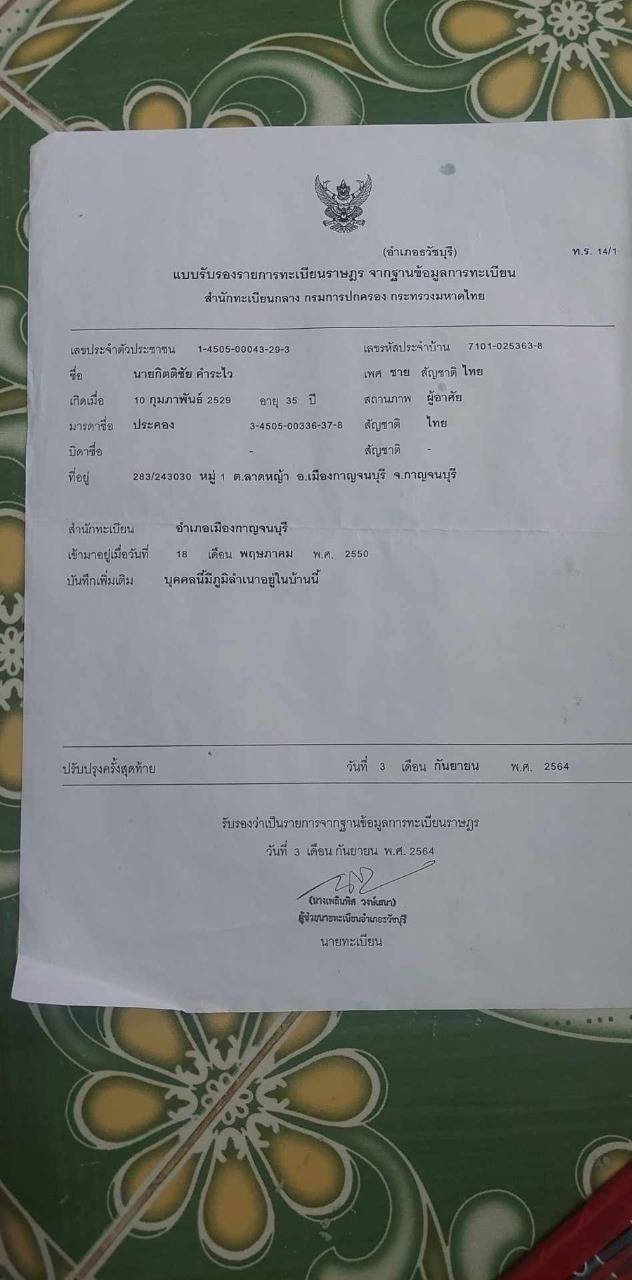 (อำเภอธวัชบุรี) ท.ร. 14/1
แบบรับรองรายการทะเบียนราษฎร จากฐานข้อมูลการทะเบียน
สำนักทะเบียนกลาง กรมการปกครอง กระทรวงมหาดไทย
เลขประจำตัวประชาชน 1-4505-00043-29-3 เลขรหัสประจำบ้าน 7101-025363-8
ชื่อ นายกิตติชัย คำระไว เพศ ชาย สัญชาติ ไทย
เกิดเมื่อ 10 กุมภาพันธ์ 2529 อายุ 35 ปี สถานภาพ ผู้อาศัย
มารดาชื่อ ประคอง 3-4505-00336-37-8 สัญชาติ ไทย
บิดาชื่อ - สัญชาติ -
ที่อยู่ 283/243030 หมู่ 1 ต.ลาดหญ้า อ.เมืองกาญจนบุรี จ.กาญจนบุรี
สำนักทะเบียน อำเภอเมืองกาญจนบุรี
เข้ามาอยู่เมื่อวันที่ 18 เดือน พฤษภาคม พ.ศ. 2550
บันทึกเพิ่มเติม บุคคลนี้มีภูมิลำเนาอยู่ในบ้านนี้
ปรับปรุงครั้งสุดท้าย วันที่ 3 เดือน กันยายน พ.ศ. 2564
รับรองว่าเป็นรายการจากฐานข้อมูลการทะเบียนราษฎร
วันที่ 3 เดือน กันยายน พ.ศ. 2564
(นางเพลินพิศ วงษ์เสนา)
ผู้ช่วยนายทะเบียนอำเภอธวัชบุรี
นายทะเบียน